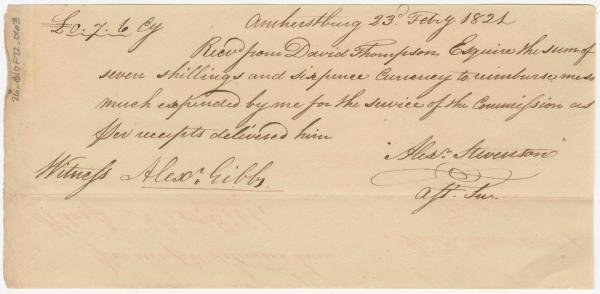 £0.7.6 Cy Amherstburg 23d Feby 1821
Recvd from David Thompson Esquire the sum of
seven shillings and sixpence Currency to reimburse me so
much expended by me for the service of the Commission as
per receipts delivered him
Alexr. Stevenson
Witness Alexr. Gibb
Asst. Sur.